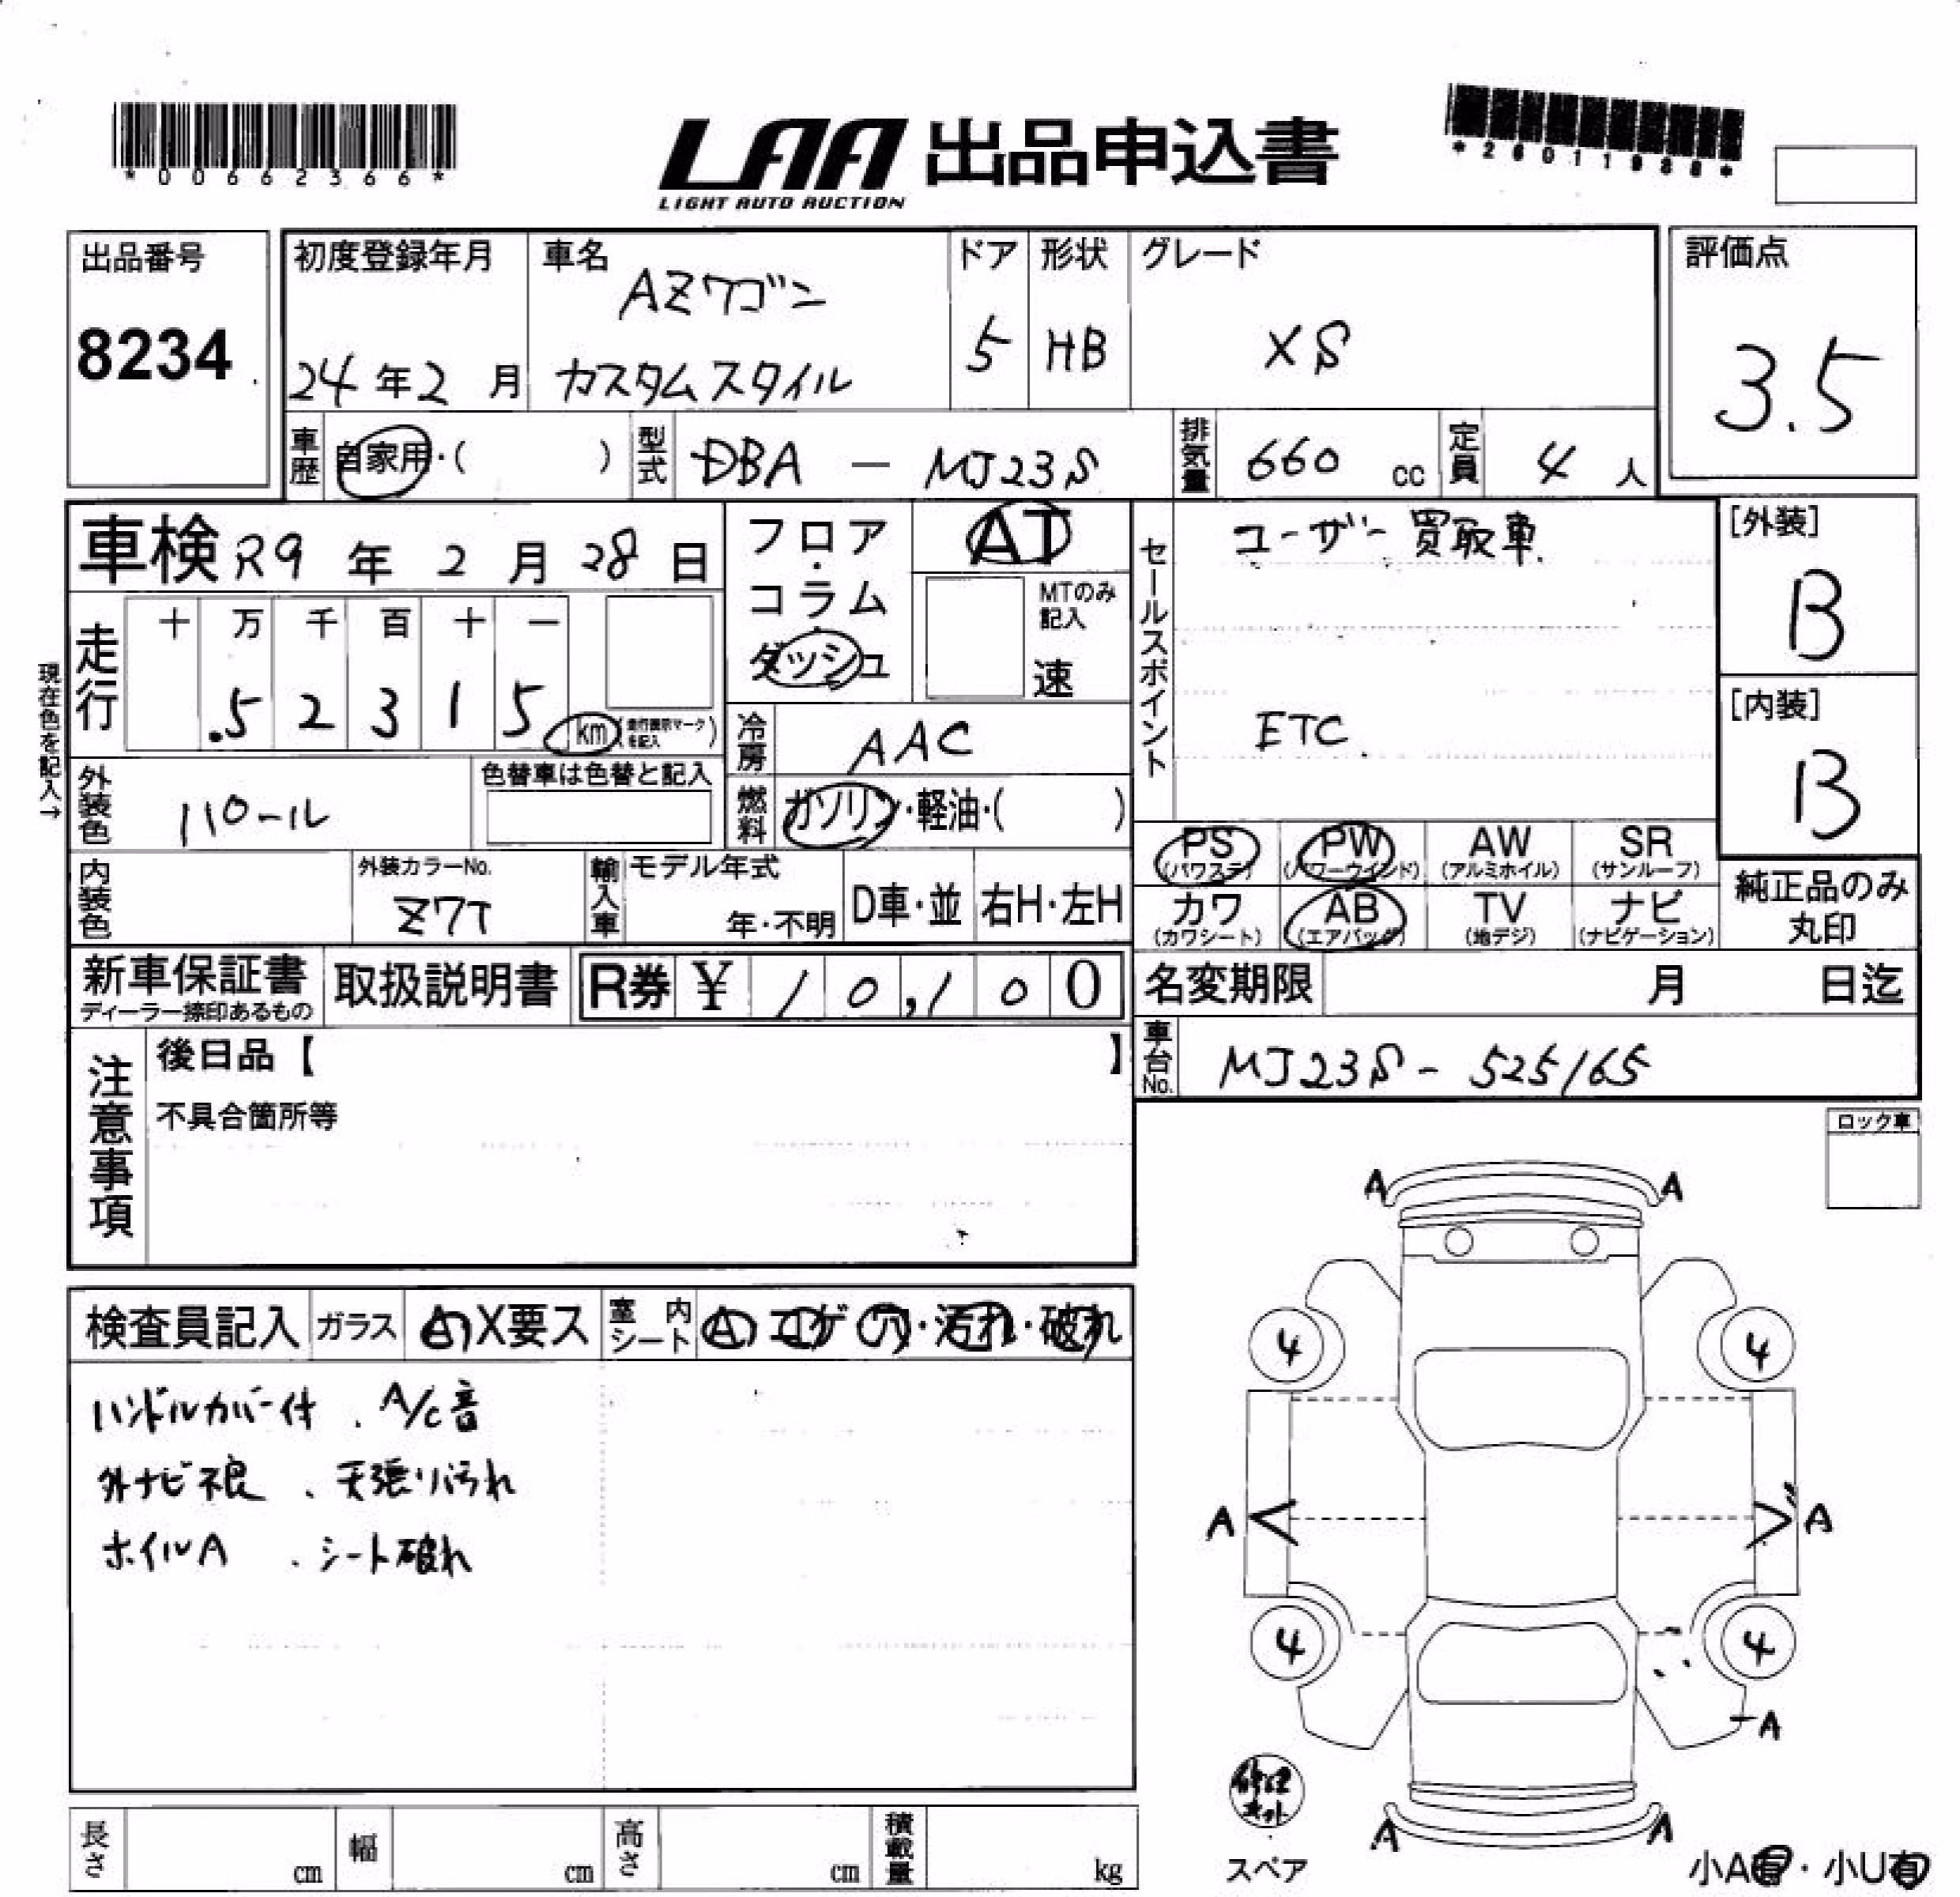 *00662366*
LAA 出品申込書
LIGHT AUTO AUCTION
*26011988*
出品番号
8234
初度登録年月
24年2月
車名
AZワゴン
カスタムスタイル
ドア
5
形状
HB
グレード
XS
評価点
3.5
車歴
自家用・( )
型式
DBA - MJ23S
排気量
660 cc
定員
4 人
車検 R9 年 2 月 28 日
フロア・コラム・ダッシュ
AT
MTのみ記入
速
セールスポイント
ユーザー買取車
ETC
[外装]
B
[内装]
B
現在色を記入→
走行
十 万 千 百 十 一
5 2 3 1 5
km (走行表示マークを記入)
冷房
AAC
外装色
パール
色替車は色替と記入
燃料
ガソリン・軽油・( )
PS (パワステ)
PW (パワーウインド)
AW (アルミホイル)
SR (サンルーフ)
内装色
外装カラーNo.
Z7T
輸入車
モデル年式
年・不明
D車・並
右H・左H
カワ (カワシート)
AB (エアバッグ)
TV (地デジ)
ナビ (ナビゲーション)
純正品のみ
丸印
新車保証書
ディーラー捺印あるもの
取扱説明書
R券 ¥ 10,100
名変期限 月 日迄
注意事項
後日品【 】
不具合箇所等
車台No.
MJ23S - 525165
ロック車
検査員記入
ガラス
A・X要ス
室内シート
A・コゲ・穴・汚れ・破れ
ハンドルカバー付 . A/C音
外ナビ不良 、天張り汚れ
ホイルA . シート破れ
A A
4 4
A A
4 4
A
A A
修理キット
スペア
小A有・小U有
長さ cm
幅 cm
高さ cm
積載量 kg